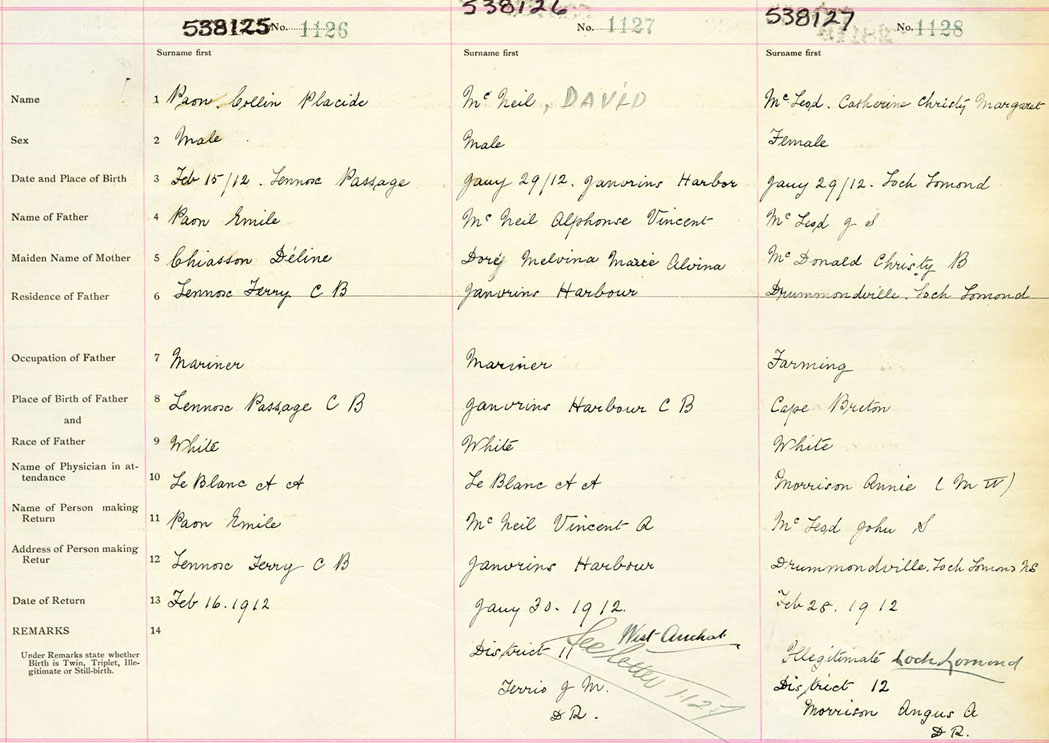 538125 No. 1126 538126 No. 1127 538127 No. 1128
Surname first Surname first Surname first
Name 1 Paon, Collin Placide Mc Neil, DAVID Mc Leod. Catherine Christy Margaret
Sex 2 Male Male Female
Date and Place of Birth 3 Feb 15/12. Lennox Passage Jany 29/12. Janvrins Harbor Jany 29/12. Loch Lomond
Name of Father 4 Paon Emile Mc Neil Alphonse Vincent Mc Leod J S
Maiden Name of Mother 5 Chiasson Déline Doré Melvina Marie Alvina Mc Donald Christy B
Residence of Father 6 Lennox Ferry C B Janvrins Harbour Drummondville. Loch Lomond
Occupation of Father 7 Mariner Mariner Farming
Place of Birth of Father 8 Lennox Passage C B Janvrins Harbour C B Cape Breton
and
Race of Father 9 White White White
Name of Physician in at-
tendance 10 Le Blanc A A Le Blanc A A Morrison Annie (M W)
Name of Person making
Return 11 Paon Emile Mc Neil Vincent A Mc Leod John S
Address of Person making
Retur 12 Lennox Ferry C B Janvrins Harbour Drummondville. Loch Lomond NS
Date of Return 13 Feb 16. 1912 Jany 30. 1912. Feb 28. 1912
REMARKS 14
Under Remarks state whether
Birth is Twin, Triplet, Ille-
gitimate or Still-birth.
District 11 West Arichat
See letter 1127
Terrio J M.
D R.
Illegitimate Loch Lomond
District 12
Morrison Angus A
D R.